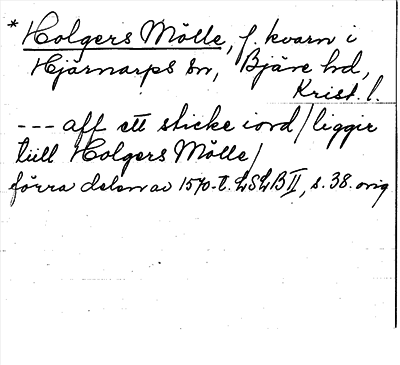 * Holgers Mölle, f. kvarn i
Hjärnarps sn, Bjäre hd,
Krist. l.
--- aff ett sticke iord/liggir
till Holgers Mölle/
förra delen av 1570-t. LSLB II, s. 38. orig